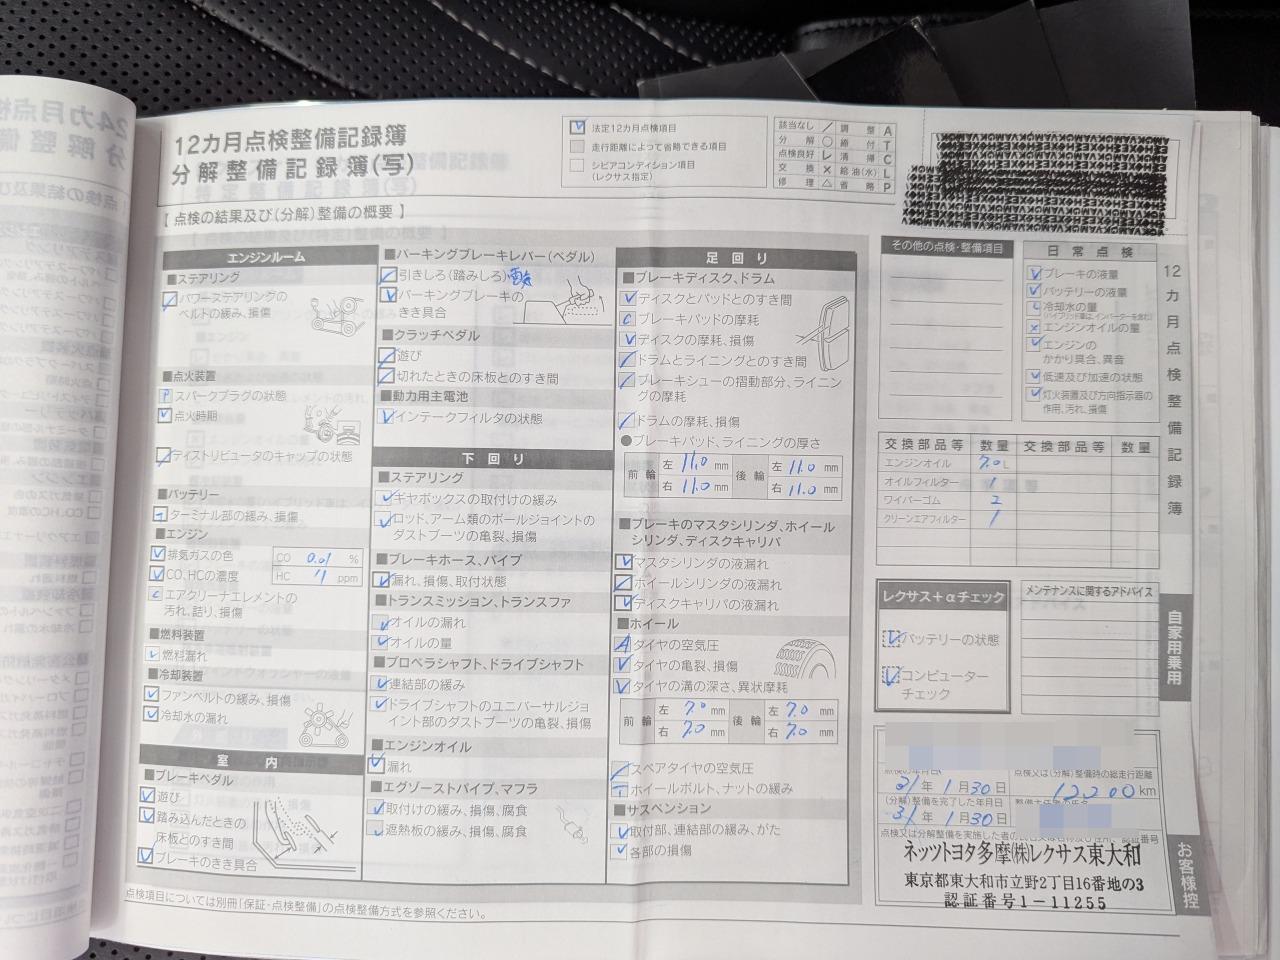 12カ月点検整備記録簿
分解整備記録簿(写)
法定12カ月点検項目
走行距離によって省略できる項目
シビアコンディション項目
(レクサス指定)
該当なし / 調整 A
分解 ○ 締付 T
点検良好 レ 清掃 C
交換 × 給油(水) L
修理 △ 省略 P
【 点検の結果及び(分解)整備の概要 】
エンジンルーム
■ステアリング
パワーステアリングの
ベルトの緩み、損傷
■点火装置
P スパークプラグの状態
点火時期
ディストリビュータのキャップの状態
■バッテリー
T ターミナル部の緩み、損傷
■エンジン
排気ガスの色
CO、HCの濃度
CO 0.01 %
HC 11 ppm
C エアクリーナエレメントの
汚れ、詰り、損傷
■燃料装置
燃料漏れ
■冷却装置
ファンベルトの緩み、損傷
冷却水の漏れ
室内
■ブレーキペダル
遊び
踏み込んだときの
床板とのすき間
ブレーキのきき具合
■パーキングブレーキレバー(ペダル)
引きしろ(踏みしろ)
パーキングブレーキの
きき具合
■クラッチペダル
遊び
切れたときの床板とのすき間
■動力用主電池
インテークフィルタの状態
下回り
■ステアリング
ギヤボックスの取付けの緩み
ロッド、アーム類のボールジョイントの
ダストブーツの亀裂、損傷
■ブレーキホース、パイプ
漏れ、損傷、取付状態
■トランスミッション、トランスファ
オイルの漏れ
オイルの量
■プロペラシャフト、ドライブシャフト
連結部の緩み
ドライブシャフトのユニバーサルジョ
イント部のダストブーツの亀裂、損傷
■エンジンオイル
漏れ
■エグゾーストパイプ、マフラ
取付けの緩み、損傷、腐食
遮熱板の緩み、損傷、腐食
足回り
■ブレーキディスク、ドラム
ディスクとパッドとのすき間
C ブレーキパッドの摩耗
ディスクの摩耗、損傷
ドラムとライニングとのすき間
ブレーキシューの摺動部分、ライニン
グの摩耗
ドラムの摩耗、損傷
●ブレーキパッド、ライニングの厚さ
前輪 左 11.0 mm 後輪 左 11.0 mm
右 11.0 mm 右 11.0 mm
■ブレーキのマスタシリンダ、ホイール
シリンダ、ディスクキャリパ
マスタシリンダの液漏れ
ホイールシリンダの液漏れ
ディスクキャリパの液漏れ
■ホイール
A タイヤの空気圧
タイヤの亀裂、損傷
タイヤの溝の深さ、異状摩耗
前輪 左 7.0 mm 後輪 左 7.0 mm
右 7.0 mm 右 7.0 mm
スペアタイヤの空気圧
T ホイールボルト、ナットの緩み
■サスペンション
取付部、連結部の緩み、がた
各部の損傷
その他の点検・整備項目
日常点検
ブレーキの液量
バッテリーの液量
冷却水の量
(ハイブリッド車は、インバーターを含む)
× エンジンオイルの量
エンジンの
かかり具合、異音
低速及び加速の状態
灯火装置及び方向指示器の
作用、汚れ、損傷
交換部品等 数量 交換部品等 数量
エンジンオイル 7.0 L
オイルフィルター 1
ワイパーゴム 2
クリーンエアフィルター 1
レクサス+αチェック
バッテリーの状態
コンピューター
チェック
メンテナンスに関するアドバイス
点検の年月日
31年 1月30日
点検又は(分解)整備時の総走行距離
12200 km
(分解)整備を完了した年月日
31年 1月30日
ネッツトヨタ多摩㈱レクサス東大和
東京都東大和市立野2丁目16番地の3
認証番号1-11255
12カ月点検整備記録簿
自家用乗用
お客様控
点検項目については別冊「保証・点検整備」の点検整備方式を参照ください。